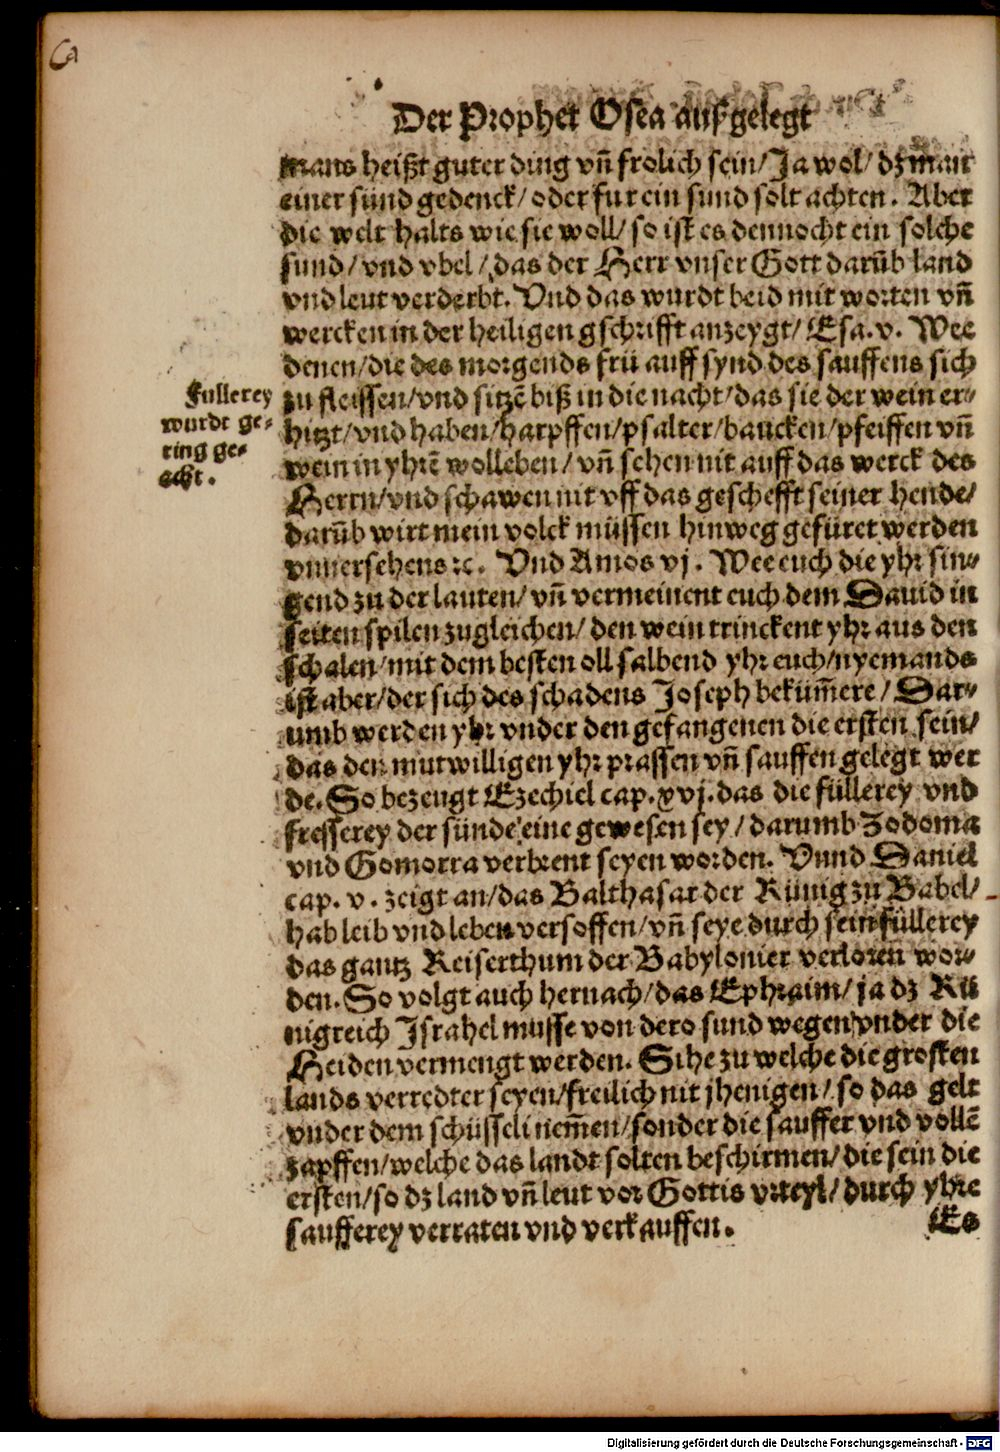 Der Prophet Osea außgelegt
mans heißt guter ding vñ frolich sein/ Ja wol/ dz man
einer sünd gedenck/ oder fur ein sund solt achten. Aber
die welt halts wie sie woll/ so ist es dennocht ein solche
sund/ vnd vbel/ das der Herr vnser Gott darũb land
vnd leut verderbt. Vnd das wurdt beid mit worten vñ
wercken in der heiligen gschrifft anzeygt/ Esa. v. Wee
denen/ die des morgends frü auff synd des sauffens sich
zu fleissen/ vnd sitzẽ biß in die nacht/ das sie der wein er⸗
hitzt/ vnd haben/ harpffen/ psalter/ baucken/ pfeiffen vñ
wein in yhrẽ wolleben/ vñ sehen nit auff das werck des
Herrn/ vnd schawen nit vff das geschefft seiner hende/
darũb wirt mein volck müssen hinweg gefüret werden
vnuersehens ꝛc. Vnd Amos vj. Wee euch die yhr sin⸗
gend zu der lauten/ vñ vermeinent euch dem Dauid in
seiten spilen zugleichen/ den wein trinckent yhr aus den
schalen/ mit dem besten oll salbend yhr euch/ nyemands
ist aber/ der sich des schadens Joseph bekũmere/ Dar⸗
umb werden yhr vnder den gefangenen die ersten sein/
das den mutwilligen yhr prassen vñ sauffen gelegt wer
de. So bezeugt Ezechiel cap. xvj. das die füllerey vnd
fresserey der sünde eine gewesen sey/ darumb Zodoma
vnd Gomorra verbrent seyen worden. Vnnd Daniel
cap. v. zeigt an/ das Balthasar der Künig zü Babel/
hab leib vnd leben versoffen/ vñ seye durch sein füllerey
das gantz Keiserthum der Babylonier verloren wor⸗
den. So volgt auch hernach/ das Ephraim/ ja dz Kü
nigreich Israhel musse von dero sund wegen vnder die
Heiden vermengt werden. Sihe zu welche die grosten
lands verredter seyen/ freilich nit jhenigen/ so das gelt
vnder dem schüsseli nem̃en/ sonder die sauffer vnd vollẽ
zapffen/ welche das landt solten beschirmen/ die sein die
ersten/ so dz land vñ leut vor Gottis vrteyl/ durch yhre
saufferey verraten vnd verkauffen.
Es
Fullerey
wurdt ge⸗
ring ge⸗
acht.
Digitalisierung gefördert durch die Deutsche Forschungsgemeinschaft - DFG